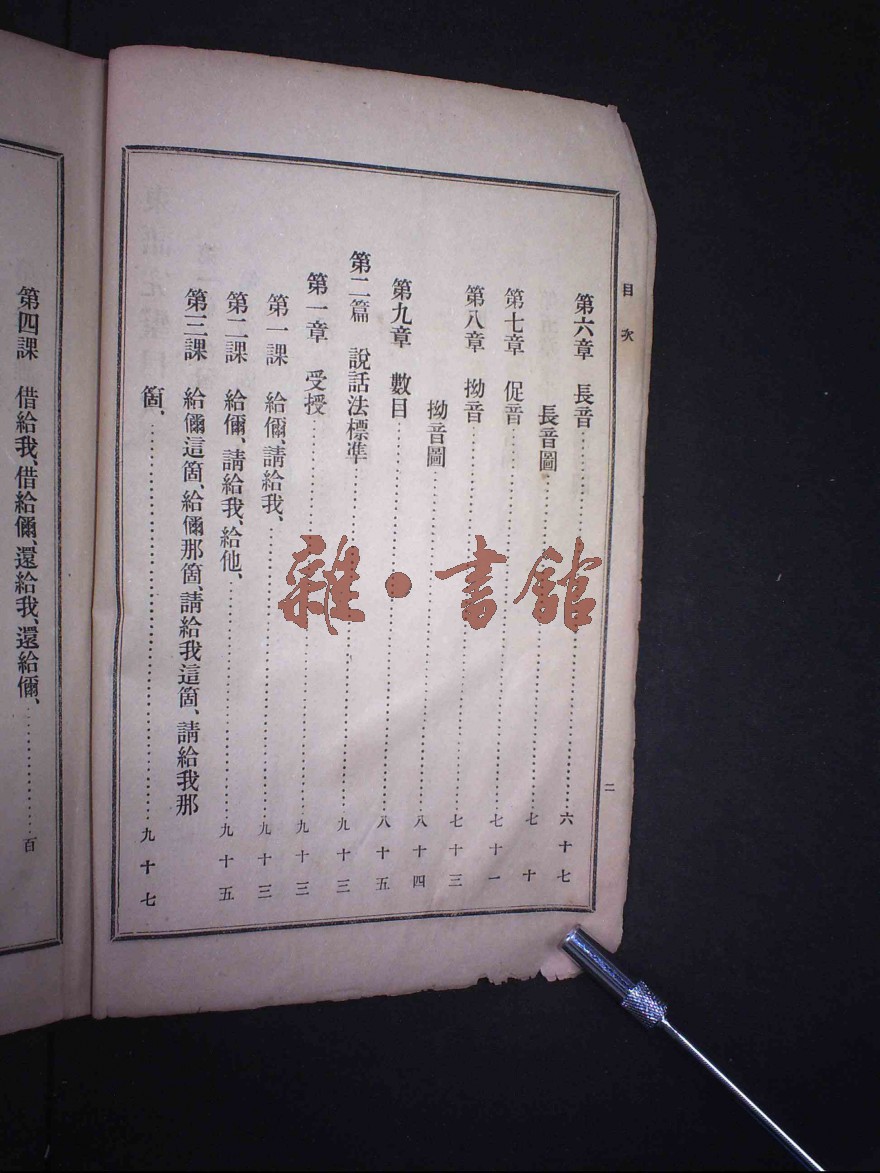 目次
二
第六章　長音……六十七
長音圖……七十
第七章　促音……七十一
第八章　拗音……七十三
拗音圖……八十四
第九章　數目……八十五
第二篇　說話法標準……九十三
第一章　受授……九十三
第一課　給儞、請給我、……九十三
第二課　給儞、請給我、給他、……九十五
第三課　給儞這箇、給儞那箇、請給我這箇、請給我那
箇、……九十七
第四課　借給我、借給儞、還給我、還給儞、……百
雜・書館